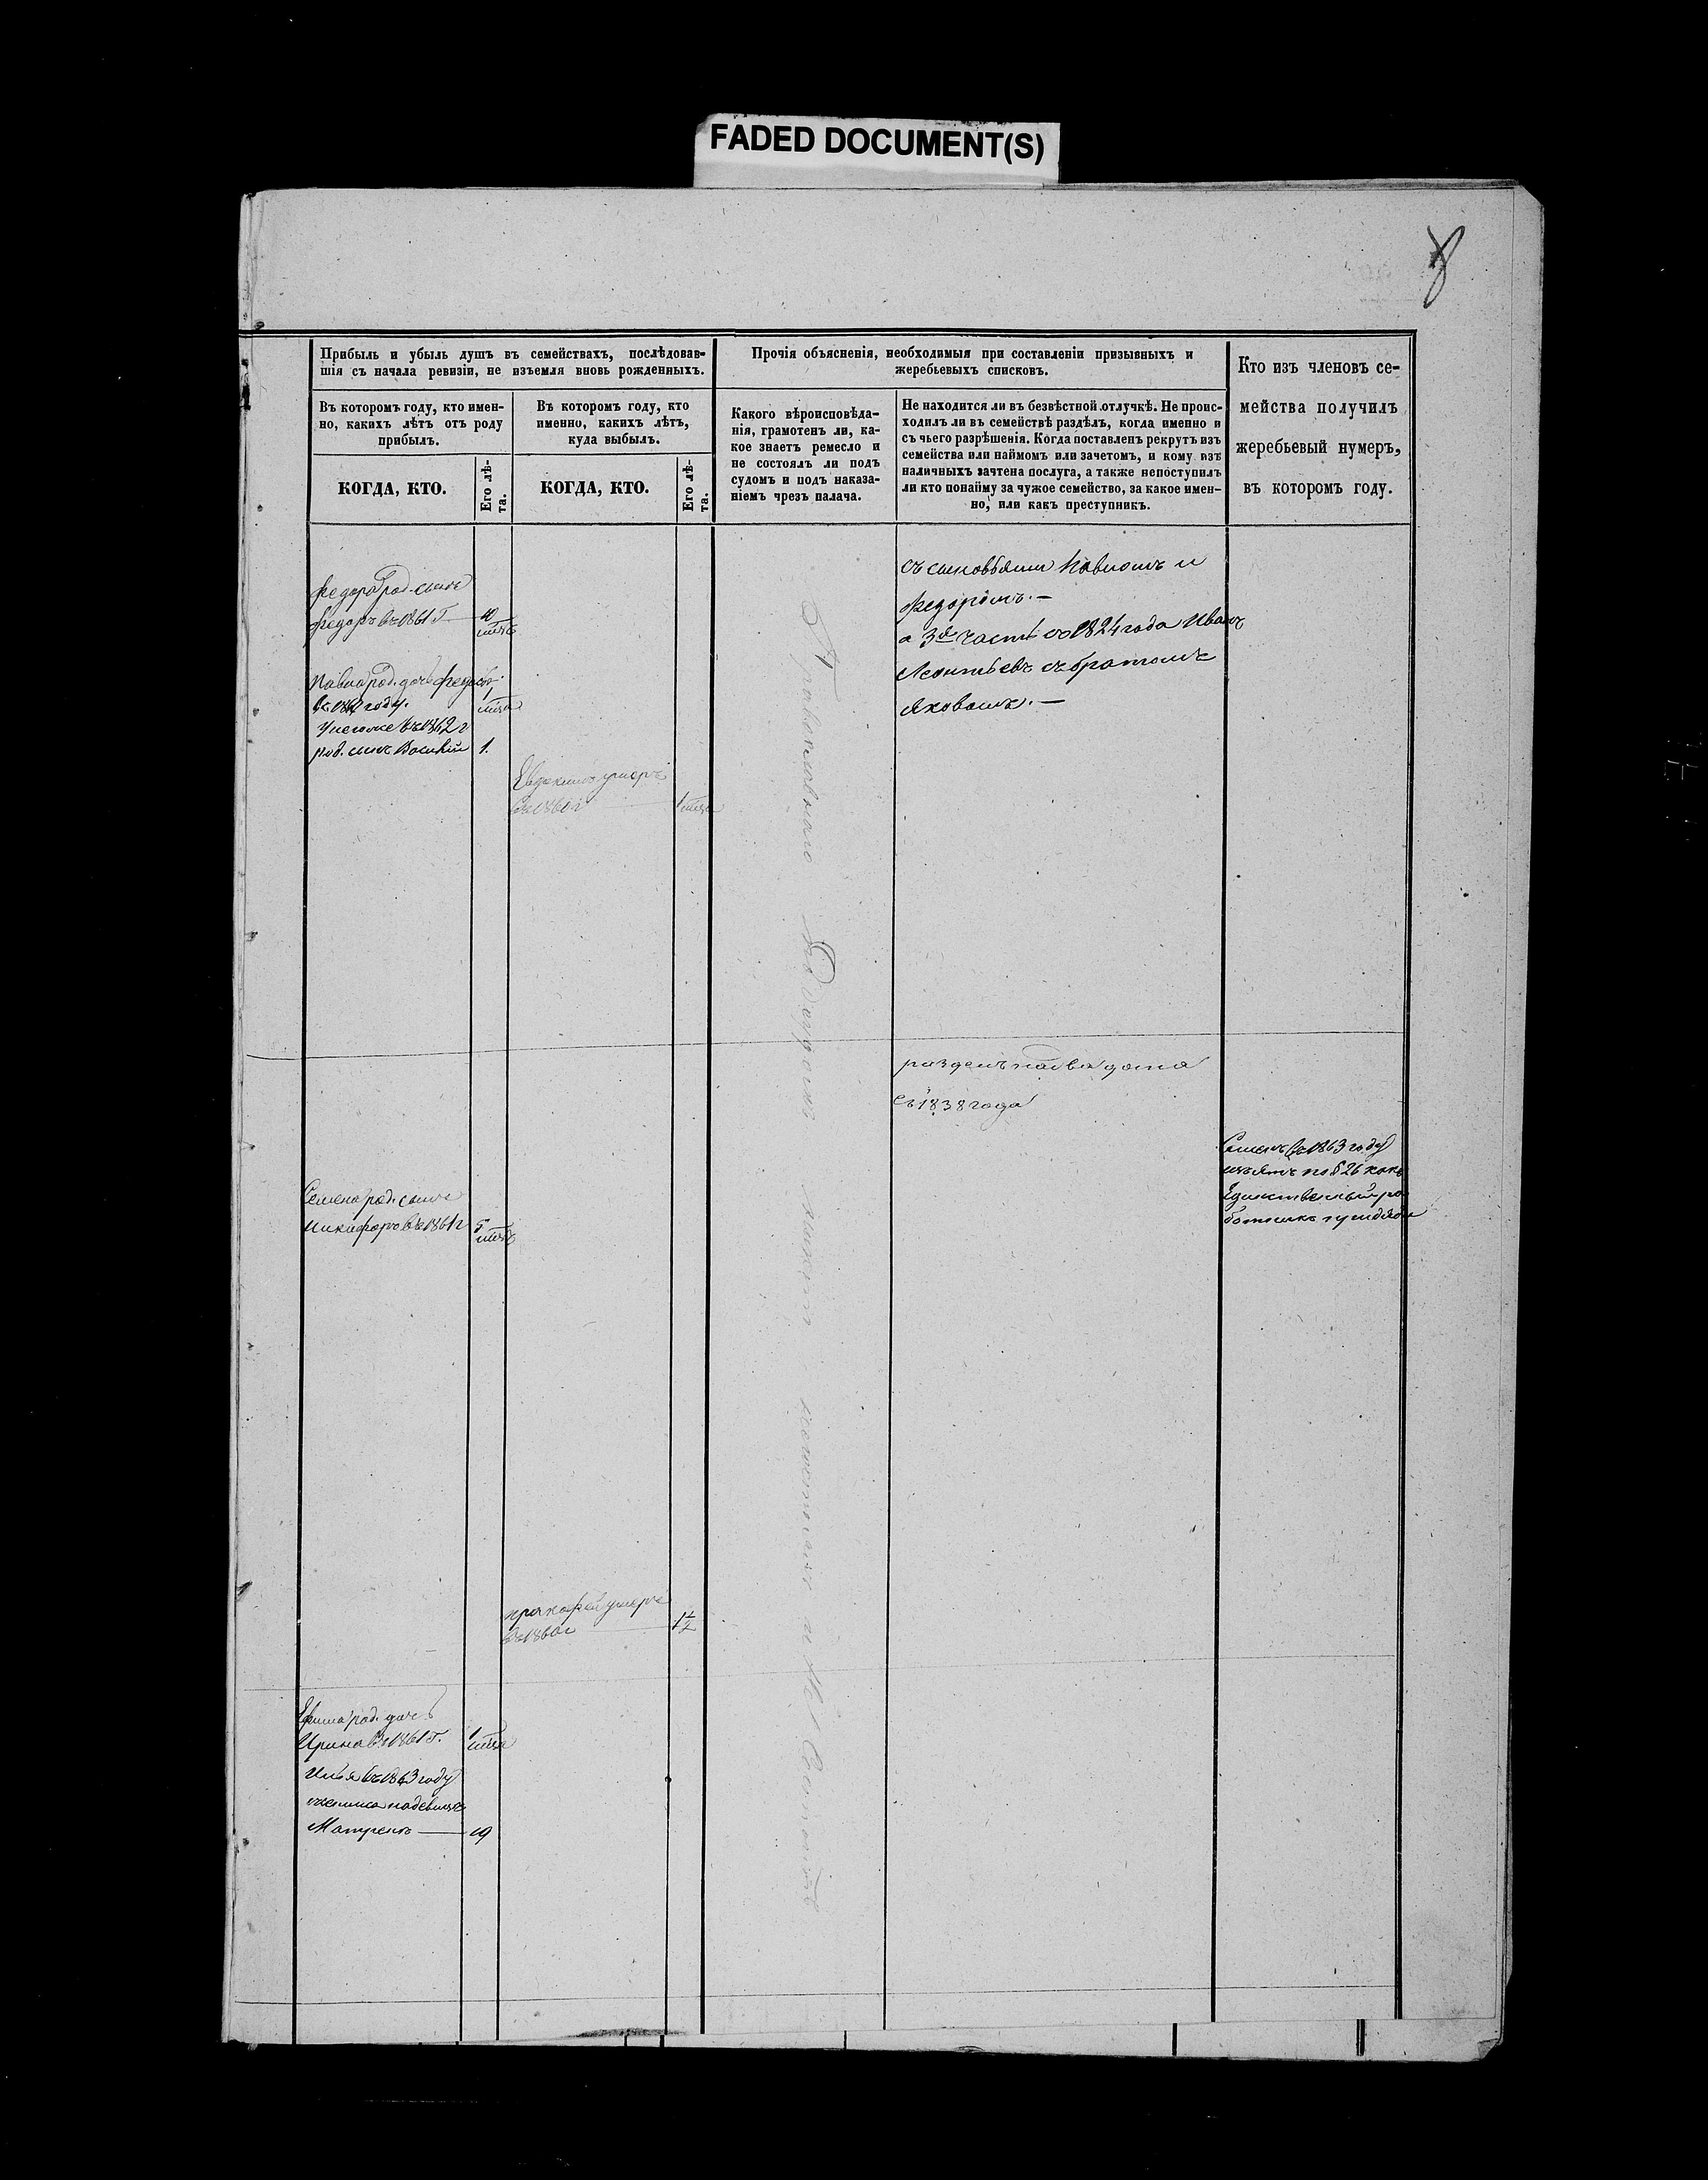 FADED DOCUMENT(S)
8
Прибыль и убыль душъ въ семействахъ, послѣдовав-
шія съ начала ревизіи, не изъемля вновь рожденныхъ.
Въ которомъ году, кто имен-
но, какихъ лѣтъ отъ роду
прибылъ.
КОГДА, КТО.
Его лѣ-
та.
Въ которомъ году, кто
именно, какихъ лѣтъ,
куда выбылъ.
КОГДА, КТО.
Его лѣ-
та.
Прочія объясненія, необходимыя при составленіи призывныхъ и
жеребьевыхъ списковъ.
Какого вѣроисповѣда-
нія, грамотенъ ли, ка-
кое знаетъ ремесло и
не состоялъ ли подъ
судомъ и подъ наказа-
ніемъ чрезъ палача.
Не находится ли въ безвѣстной отлучкѣ. Не проис-
ходилъ ли въ семействѣ раздѣлъ, когда именно и
съ чьего разрѣшенія. Когда поставленъ рекрутъ изъ
семейства или наймомъ или зачетомъ, и кому изъ
наличныхъ зачтена послуга, а также непоступилъ
ли кто понайму за чужое семейство, за какое имен-
но, или какъ преступникъ.
Кто изъ членовъ се-
мейства получилъ
жеребьевый нумеръ,
въ которомъ году.
Федора род. сынъ
Федоръ въ 1861 г
Павла род. дочь
году.
Унегоже въ 1862 г
род. сынъ Василій 1.
Евдокимъ умеръ
въ 1861 г
съ сыновьями Павломъ и
Федоромъ. —
а 3я часть съ 1824 года Иванъ
Леонтьевъ съ братомъ
Яковомъ. —
Православнаго
раздѣлъ на два дома
съ 1838 года
Семенъ въ 1863 году
изъятъ по § 26 какъ
Единственный ра
ботникъ при дядѣ
Семена род. сынъ
Никифоръ въ 1861 г 5
прокофей умеръ
въ 1860 г 1 1/2
Ефима род. дочь
Ирина въ 1861 г. 1
Илья въ 1863 году
женился надевицѣ
Матренѣ — 19